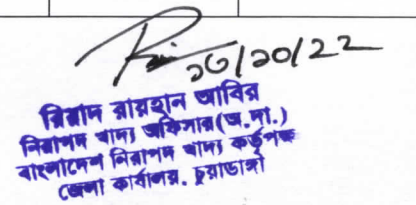 ১৩/১০/২২
রিয়াদ রায়হান আবির
নিরাপদ খাদ্য অফিসার(অ.দা.)
বাংলাদেশ নিরাপদ খাদ্য কর্তৃপক্ষ
জেলা কার্যালয়, চুয়াডাঙ্গা